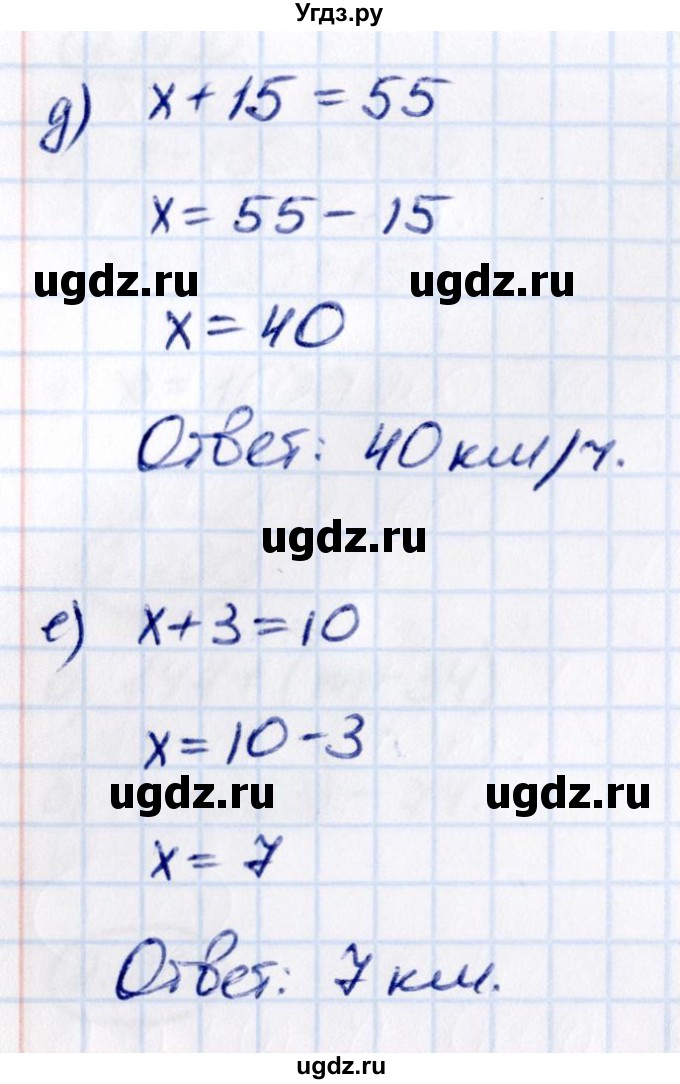 Угдз.ру
д) x + 15 = 55
x = 55 - 15
ugdz.ru ugdz.ru
x = 40
Ответ: 40 км/ч.
ugdz.ru
е) x + 3 = 10
x = 10 - 3
ugdz.ru ugdz.ru
x = 7
Ответ: 7 км.
ugdz.ru